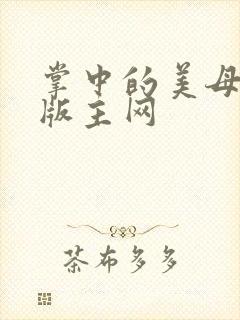 掌中的美母
版主网
茶布多多